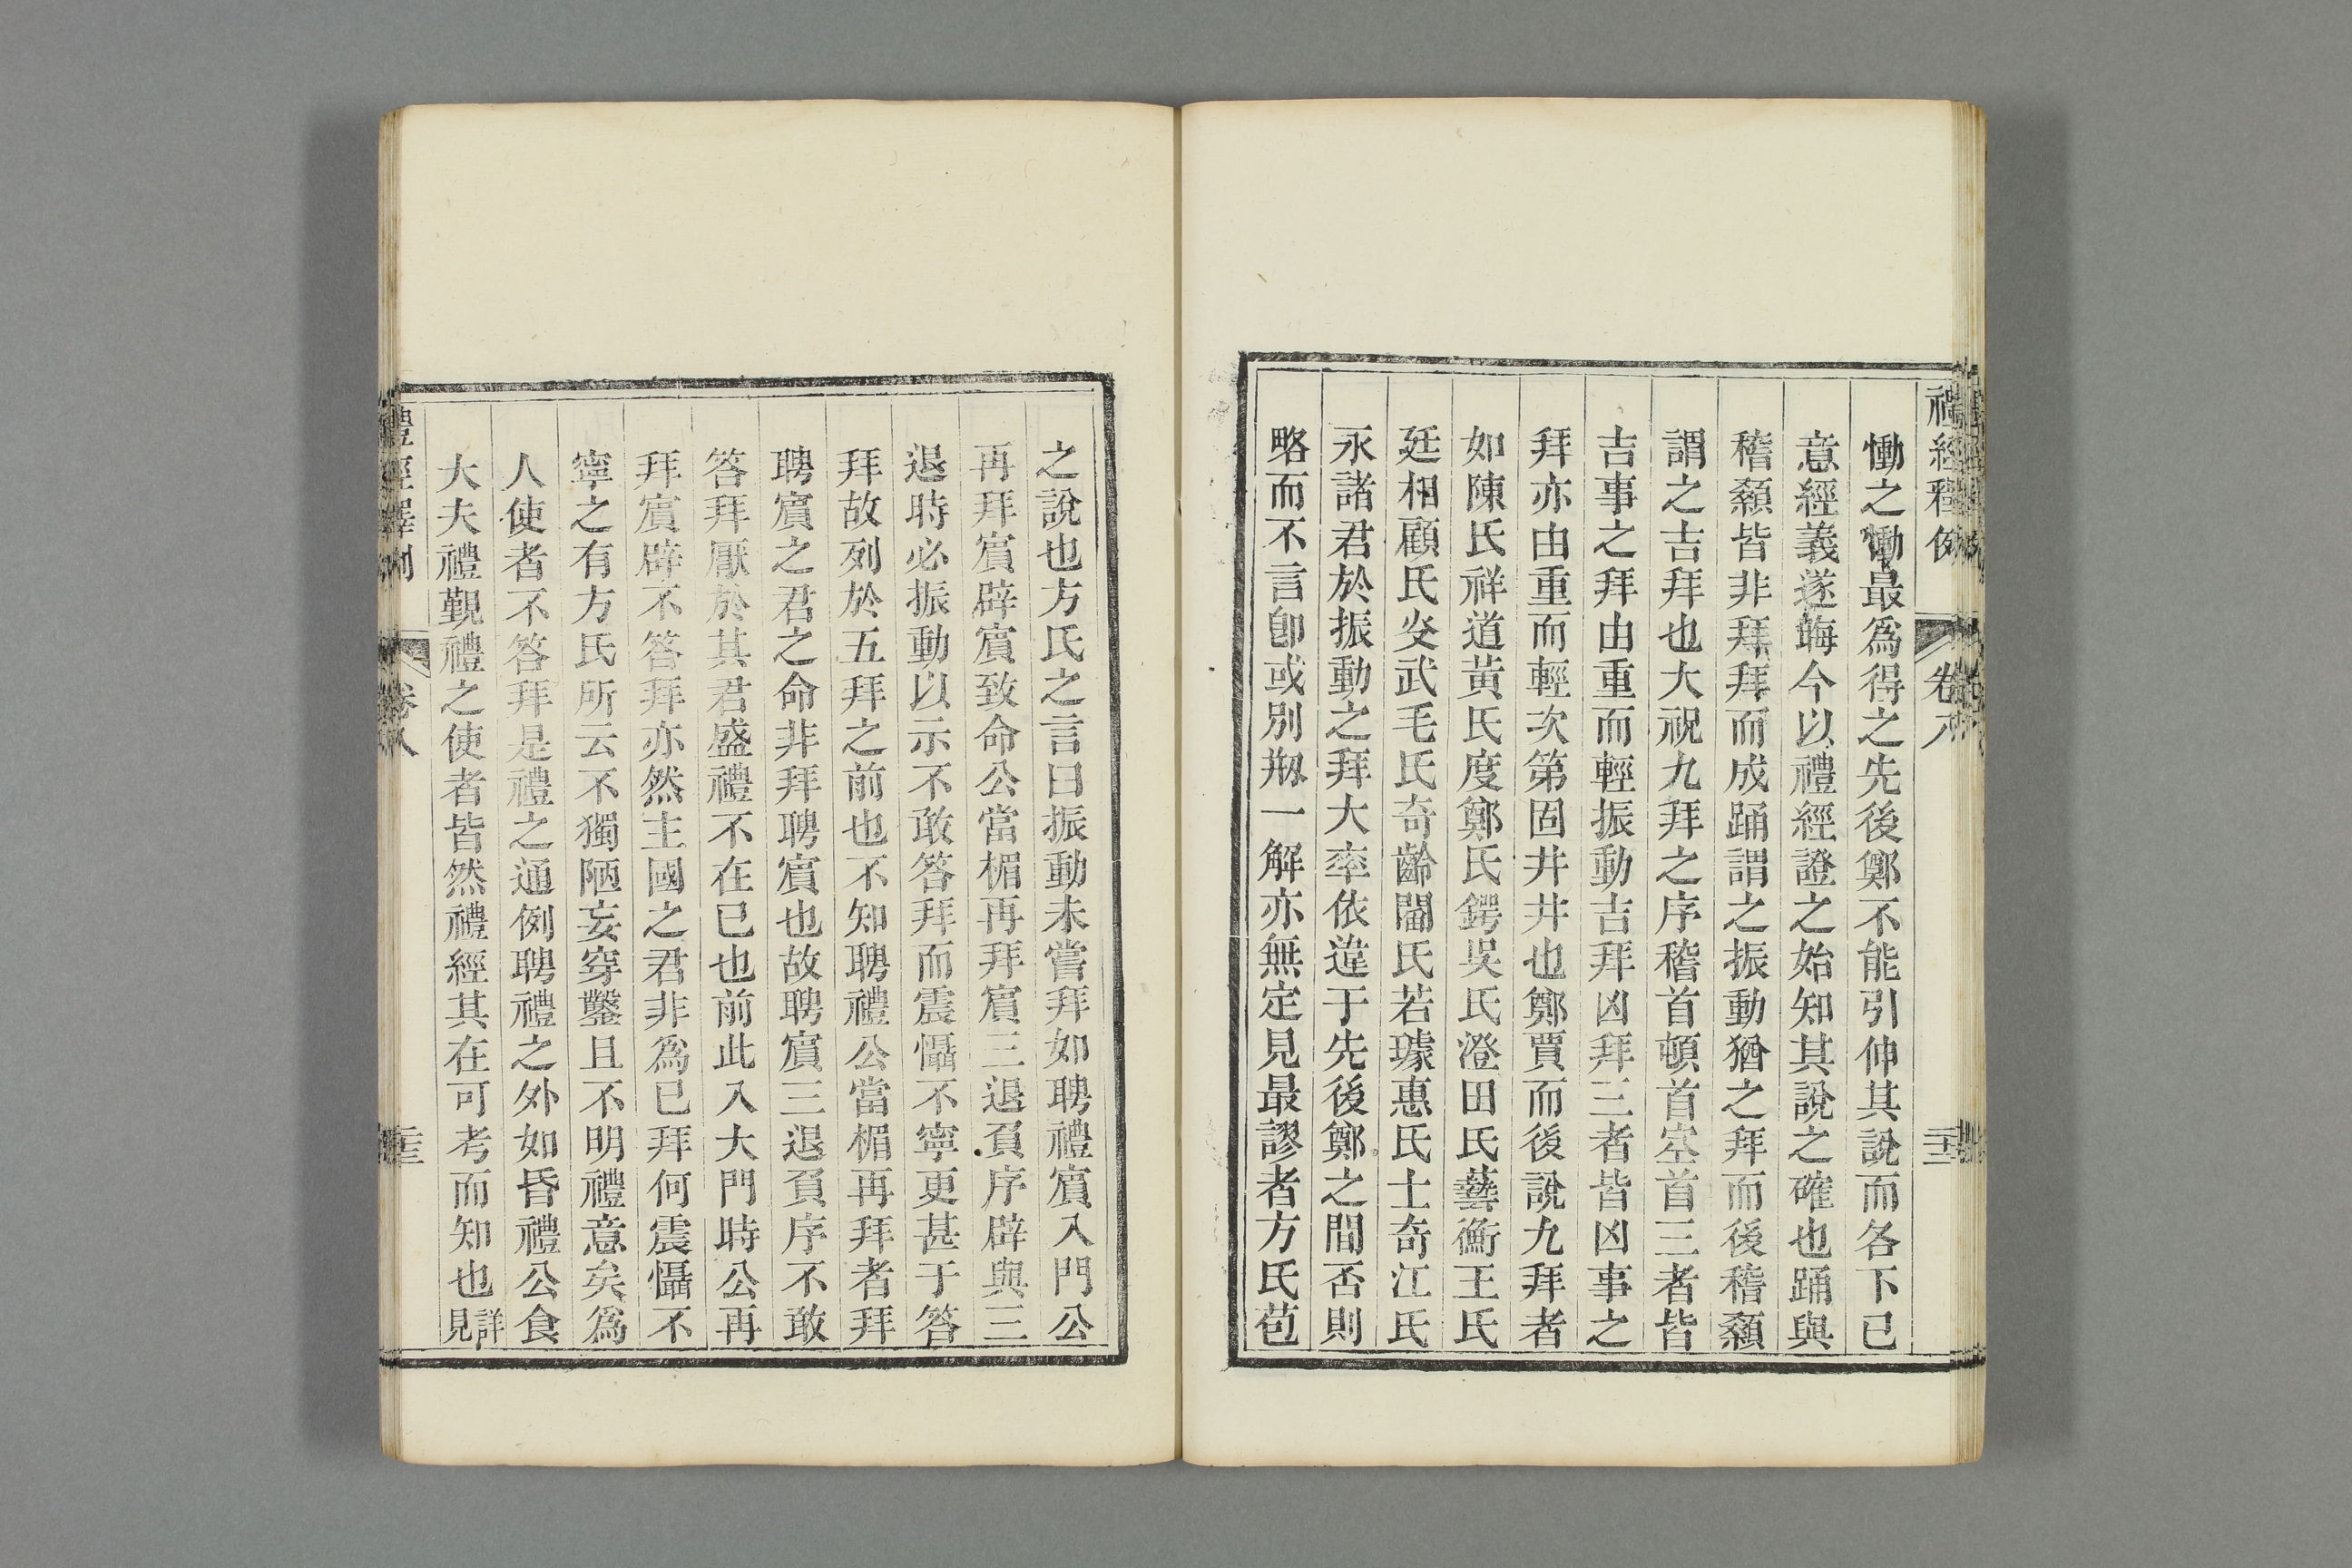 禮經釋例 卷八 二十二
慟之慟最爲得之先後鄭不能引伸其說而各下已
意經義遂晦今以禮經證之始知其說之確也踊與
稽顙皆非拜拜而成踊謂之振動猶之拜而後稽顙
謂之吉拜也大祝九拜之序稽首頓首空首三者皆
吉事之拜由重而輕振動吉拜凶拜三者皆凶事之
拜亦由重而輕次第固井井也鄭賈而後說九拜者
如陳氏祥道黃氏度鄭氏鍔吳氏澄田氏藝蘅王氏
廷相顧氏炎武毛氏奇齡閻氏若璩惠氏士奇江氏
永諸君於振動之拜大率依違于先後鄭之間否則
略而不言卽或別刱一解亦無定見最謬者方氏苞
之說也方氏之言曰振動未嘗拜如聘禮賓入門公
再拜賓辟賓致命公當楣再拜賓三退負序辟與三
退時必振動以示不敢答拜而震慴不寧更甚于答
拜故列於五拜之前也不知聘禮公當楣再拜者拜
聘賓之君之命非拜聘賓也故聘賓三退負序不敢
答拜厭於其君盛禮不在已也前此入大門時公再
拜賓辟不答拜亦然主國之君非爲已拜何震慴不
寧之有方氏所云不獨陋妄穿鑿且不明禮意矣爲
人使者不答拜是禮之通例聘禮之外如昏禮公食
大夫禮覲禮之使者皆然禮經其在可考而知也詳見
禮經釋例 卷八